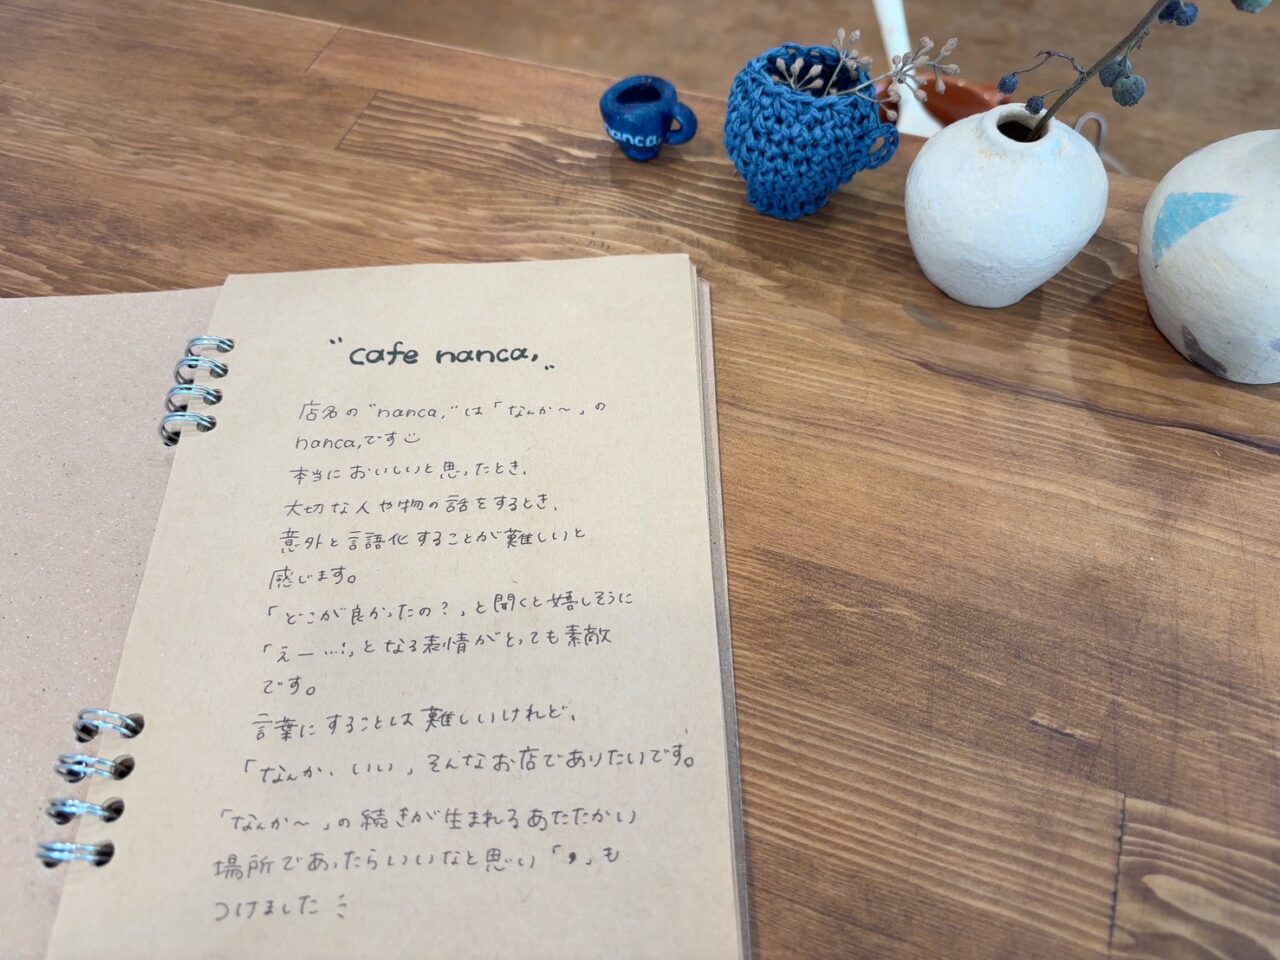 nanca,
"cafe nanca,"
店名の"nanca,"は「なんか〜」の
nanca,です
本当においしいと思ったとき、
大切な人や物の話をするとき、
意外と言語化することが難しいと
感じます。
「どこが良かったの?」と聞くと嬉しそうに
「えー…!」となる表情がとっても素敵
です。
言葉にすることは難しいけれど、
「なんか、いい」そんなお店でありたいです。
「なんか〜」の続きが生まれるあたたかい
場所であったらいいなと思い「,」も
つけました